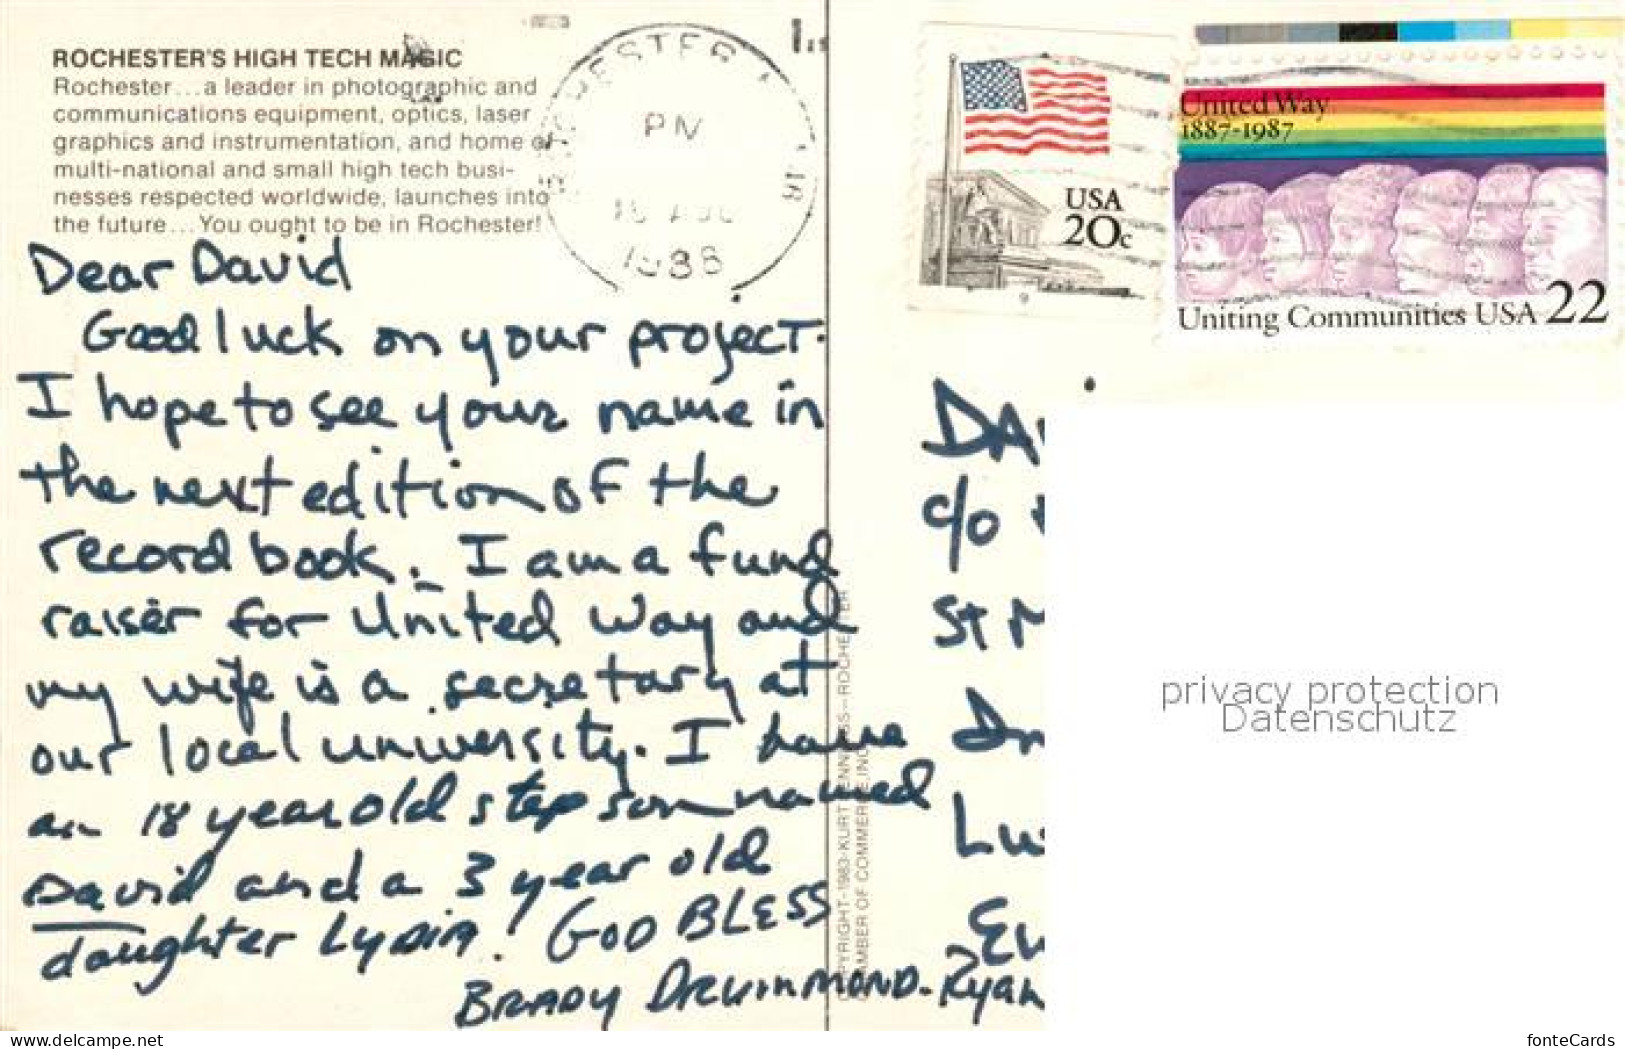 ROCHESTER'S HIGH TECH MAGIC
Rochester...a leader in photographic and
communications equipment, optics, laser
graphics and instrumentation, and home of
multi-national and small high tech busi-
nesses respected worldwide, launches into
the future...You ought to be in Rochester!
ROCHESTER
PM
1988
USA
20c
United Way
1887-1987
Uniting Communities USA 22
Dear David
Good luck on your project.
I hope to see your name in
the next edition of the
record book. I am a fund
raiser for United Way and
my wife is a secretary at
our local university. I have
an 18 year old step son named
David and a 3 year old
daughter Lydia! GOD BLESS
BRADY DRUMMOND-Ryan
COPYRIGHT-1983-KURT ROCHESTER
CHAMBER OF COMMERCE, INC.
DA
c/o
St M
Lu
privacy protection
Datenschutz
www.delcampe.net
fonteCards